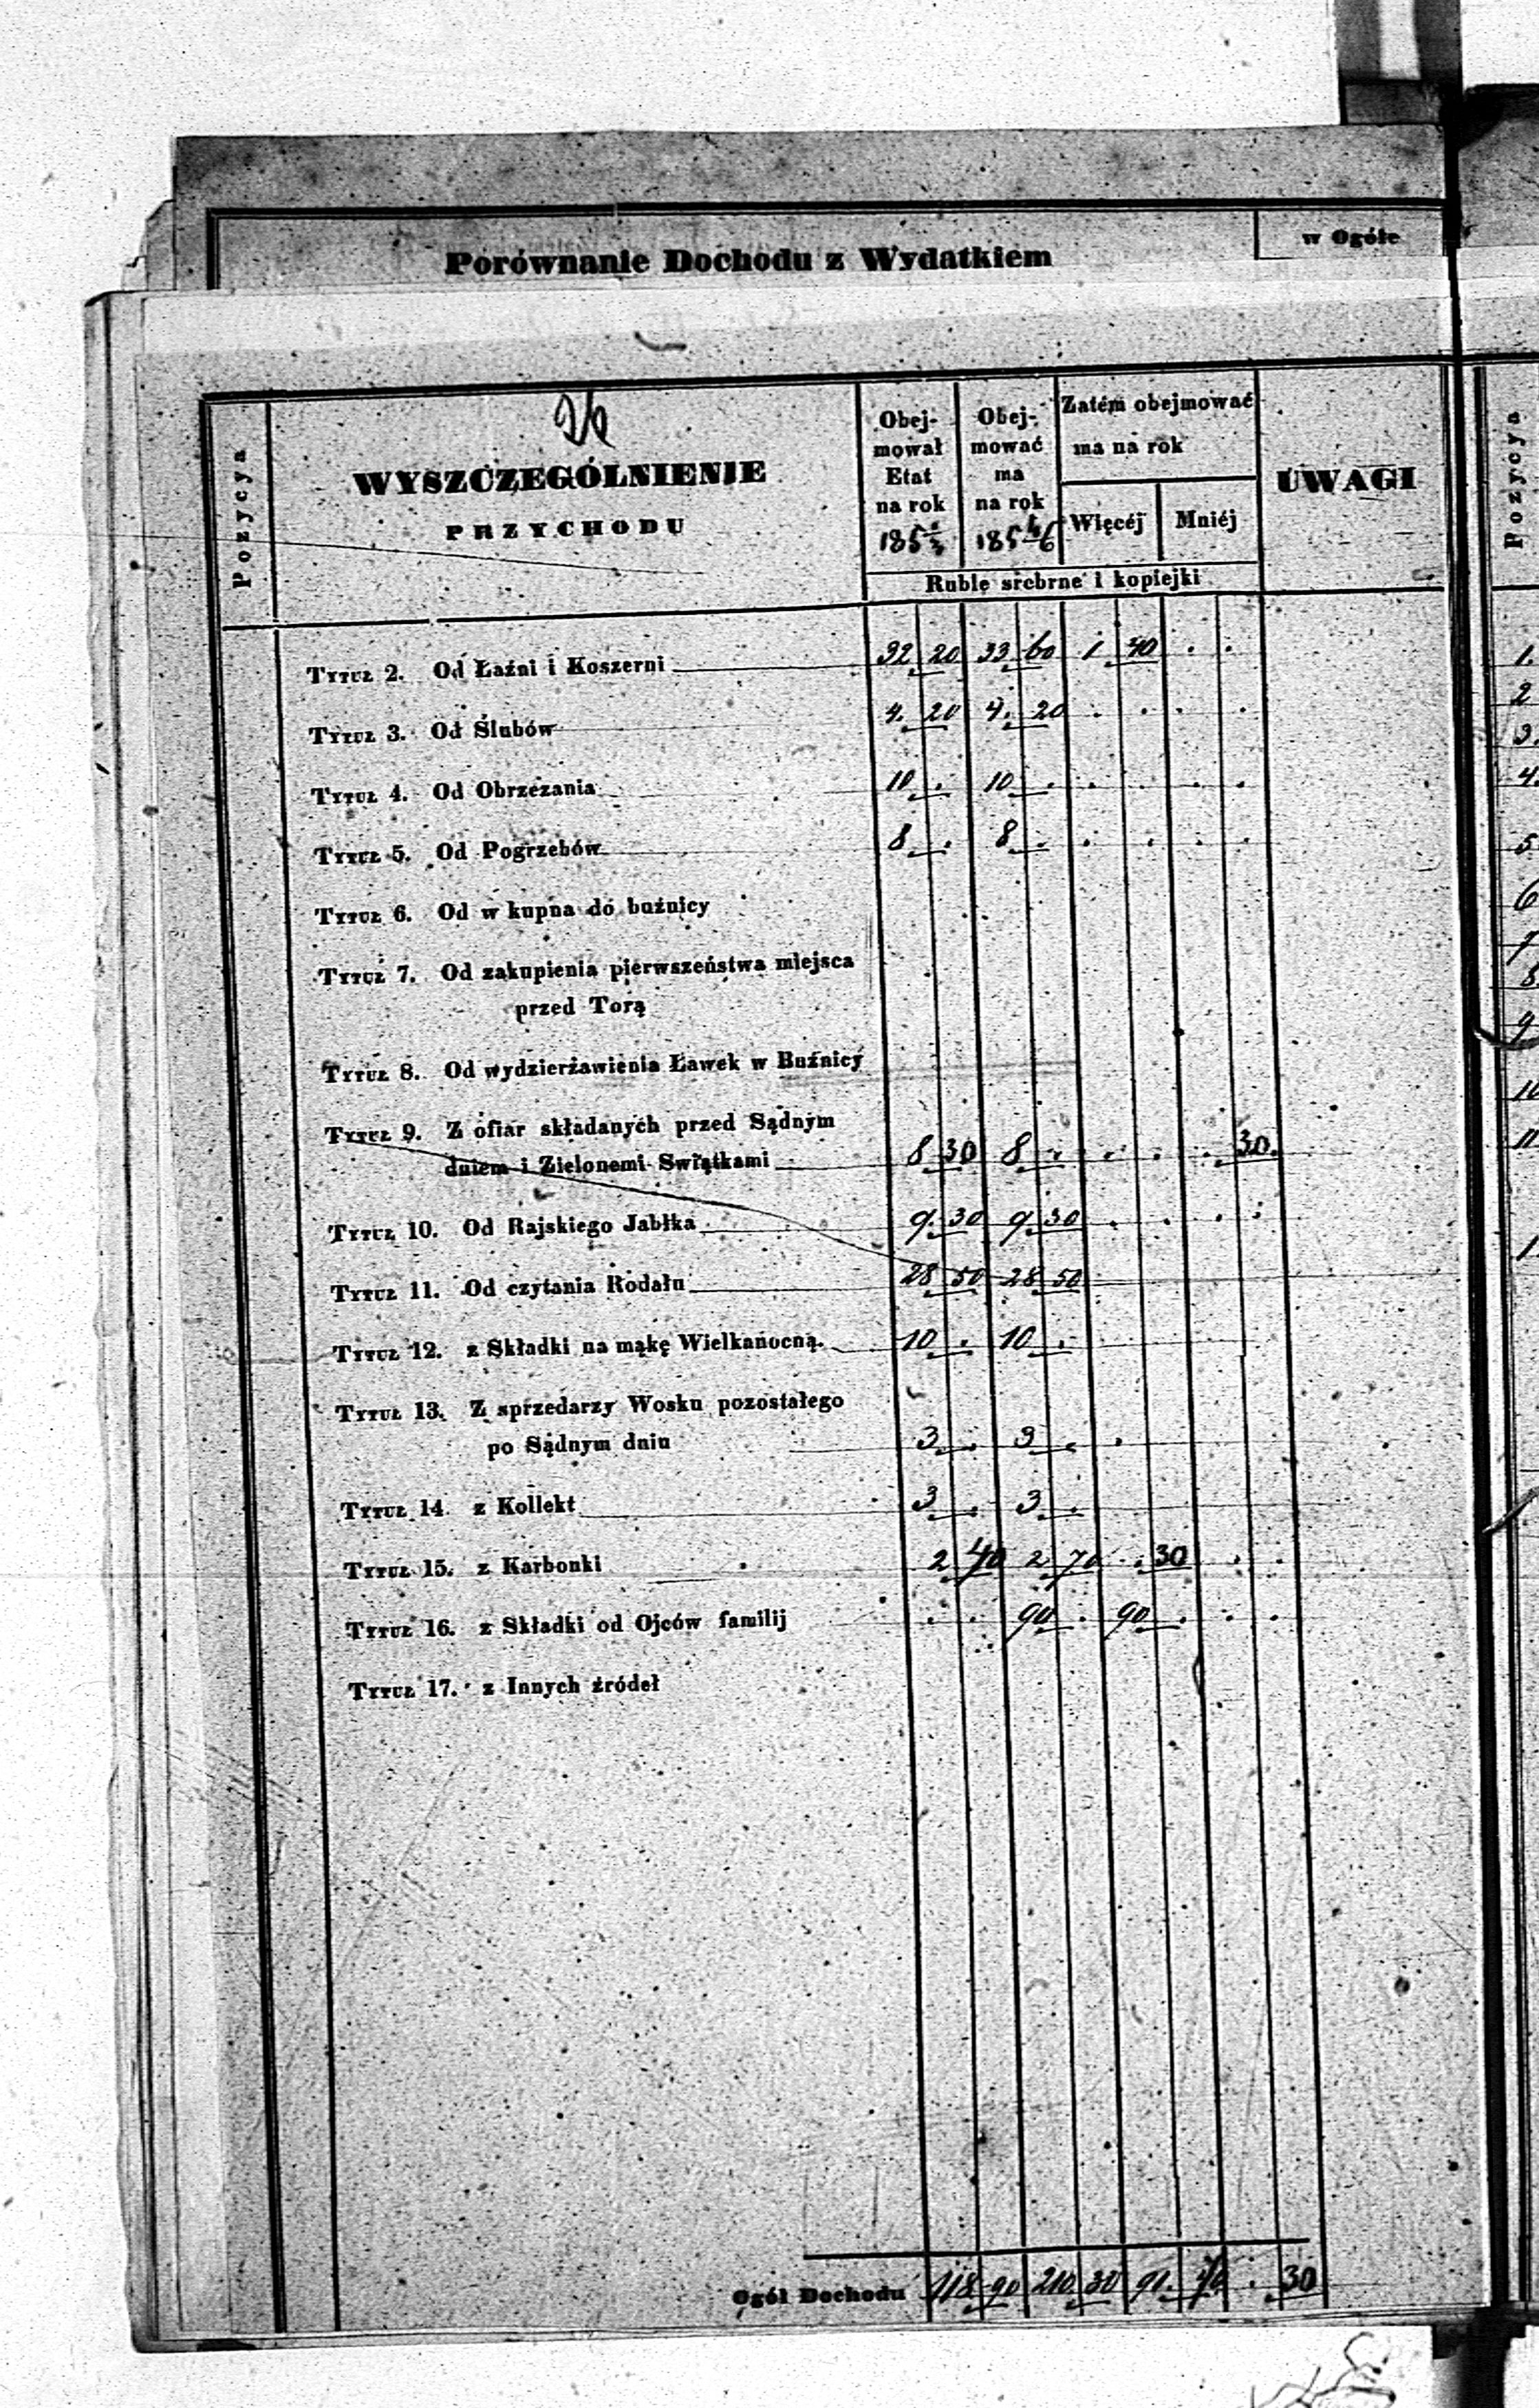 Porównanie Dochodu z Wydatkiem
w Ogóle
Pozycya
WYSZCZEGÓLNIENIE
PRZYCHODU
Obej-
mował
Etat
na rok
185
Obej-
mować
ma
na rok
185 4/6
Zatém obejmować
ma na rok
Więcéj
Mniéj
UWAGI
Ruble srebrne i kopiejki
Tytuł 2. Od Łaźni i Koszerni 32 20 33 60 1 40 . .
Tytuł 3. Od Ślubów 4. 20 4. 20 . . . .
Tytuł 4. Od Obrzezania 10 . 10 . . . . .
Tytuł 5. Od Pogrzebów 8 . 8 . . . . .
Tytuł 6. Od w kupna do buźnicy
Tytuł 7. Od zakupienia pierwszeństwa miejsca
przed Torą
Tytuł 8. Od wydzierżawienia Ławek w Buźnicy
Tytuł 9. Z ofiar składanych przed Sądnym
dniem i Zielonemi Swiątkami 8 30 8 . . . . 30.
Tytuł 10. Od Rajskiego Jabłka 9. 30 9 30 . . . .
Tytuł 11. Od czytania Rodału 28 50 28 50
Tytuł 12. z Składki na mąkę Wielkanocną. 10 . 10 .
Tytuł 13. Z sprzedarzy Wosku pozostałego
po Sądnym dniu 3 . 3 . .
Tytuł 14. z Kollekt 3 . 3 .
Tytuł 15. z Karbonki 2 40 2 70 . 30 . .
Tytuł 16. z Składki od Ojców familij . . 90 . 90 . . .
Tytuł 17. z Innych źródeł
Ogół Dochodu 118 90 210 30 91. 70 . 30
Pozycya
1.
2
3.
4.
5
6
7
8.
9
10
11
1